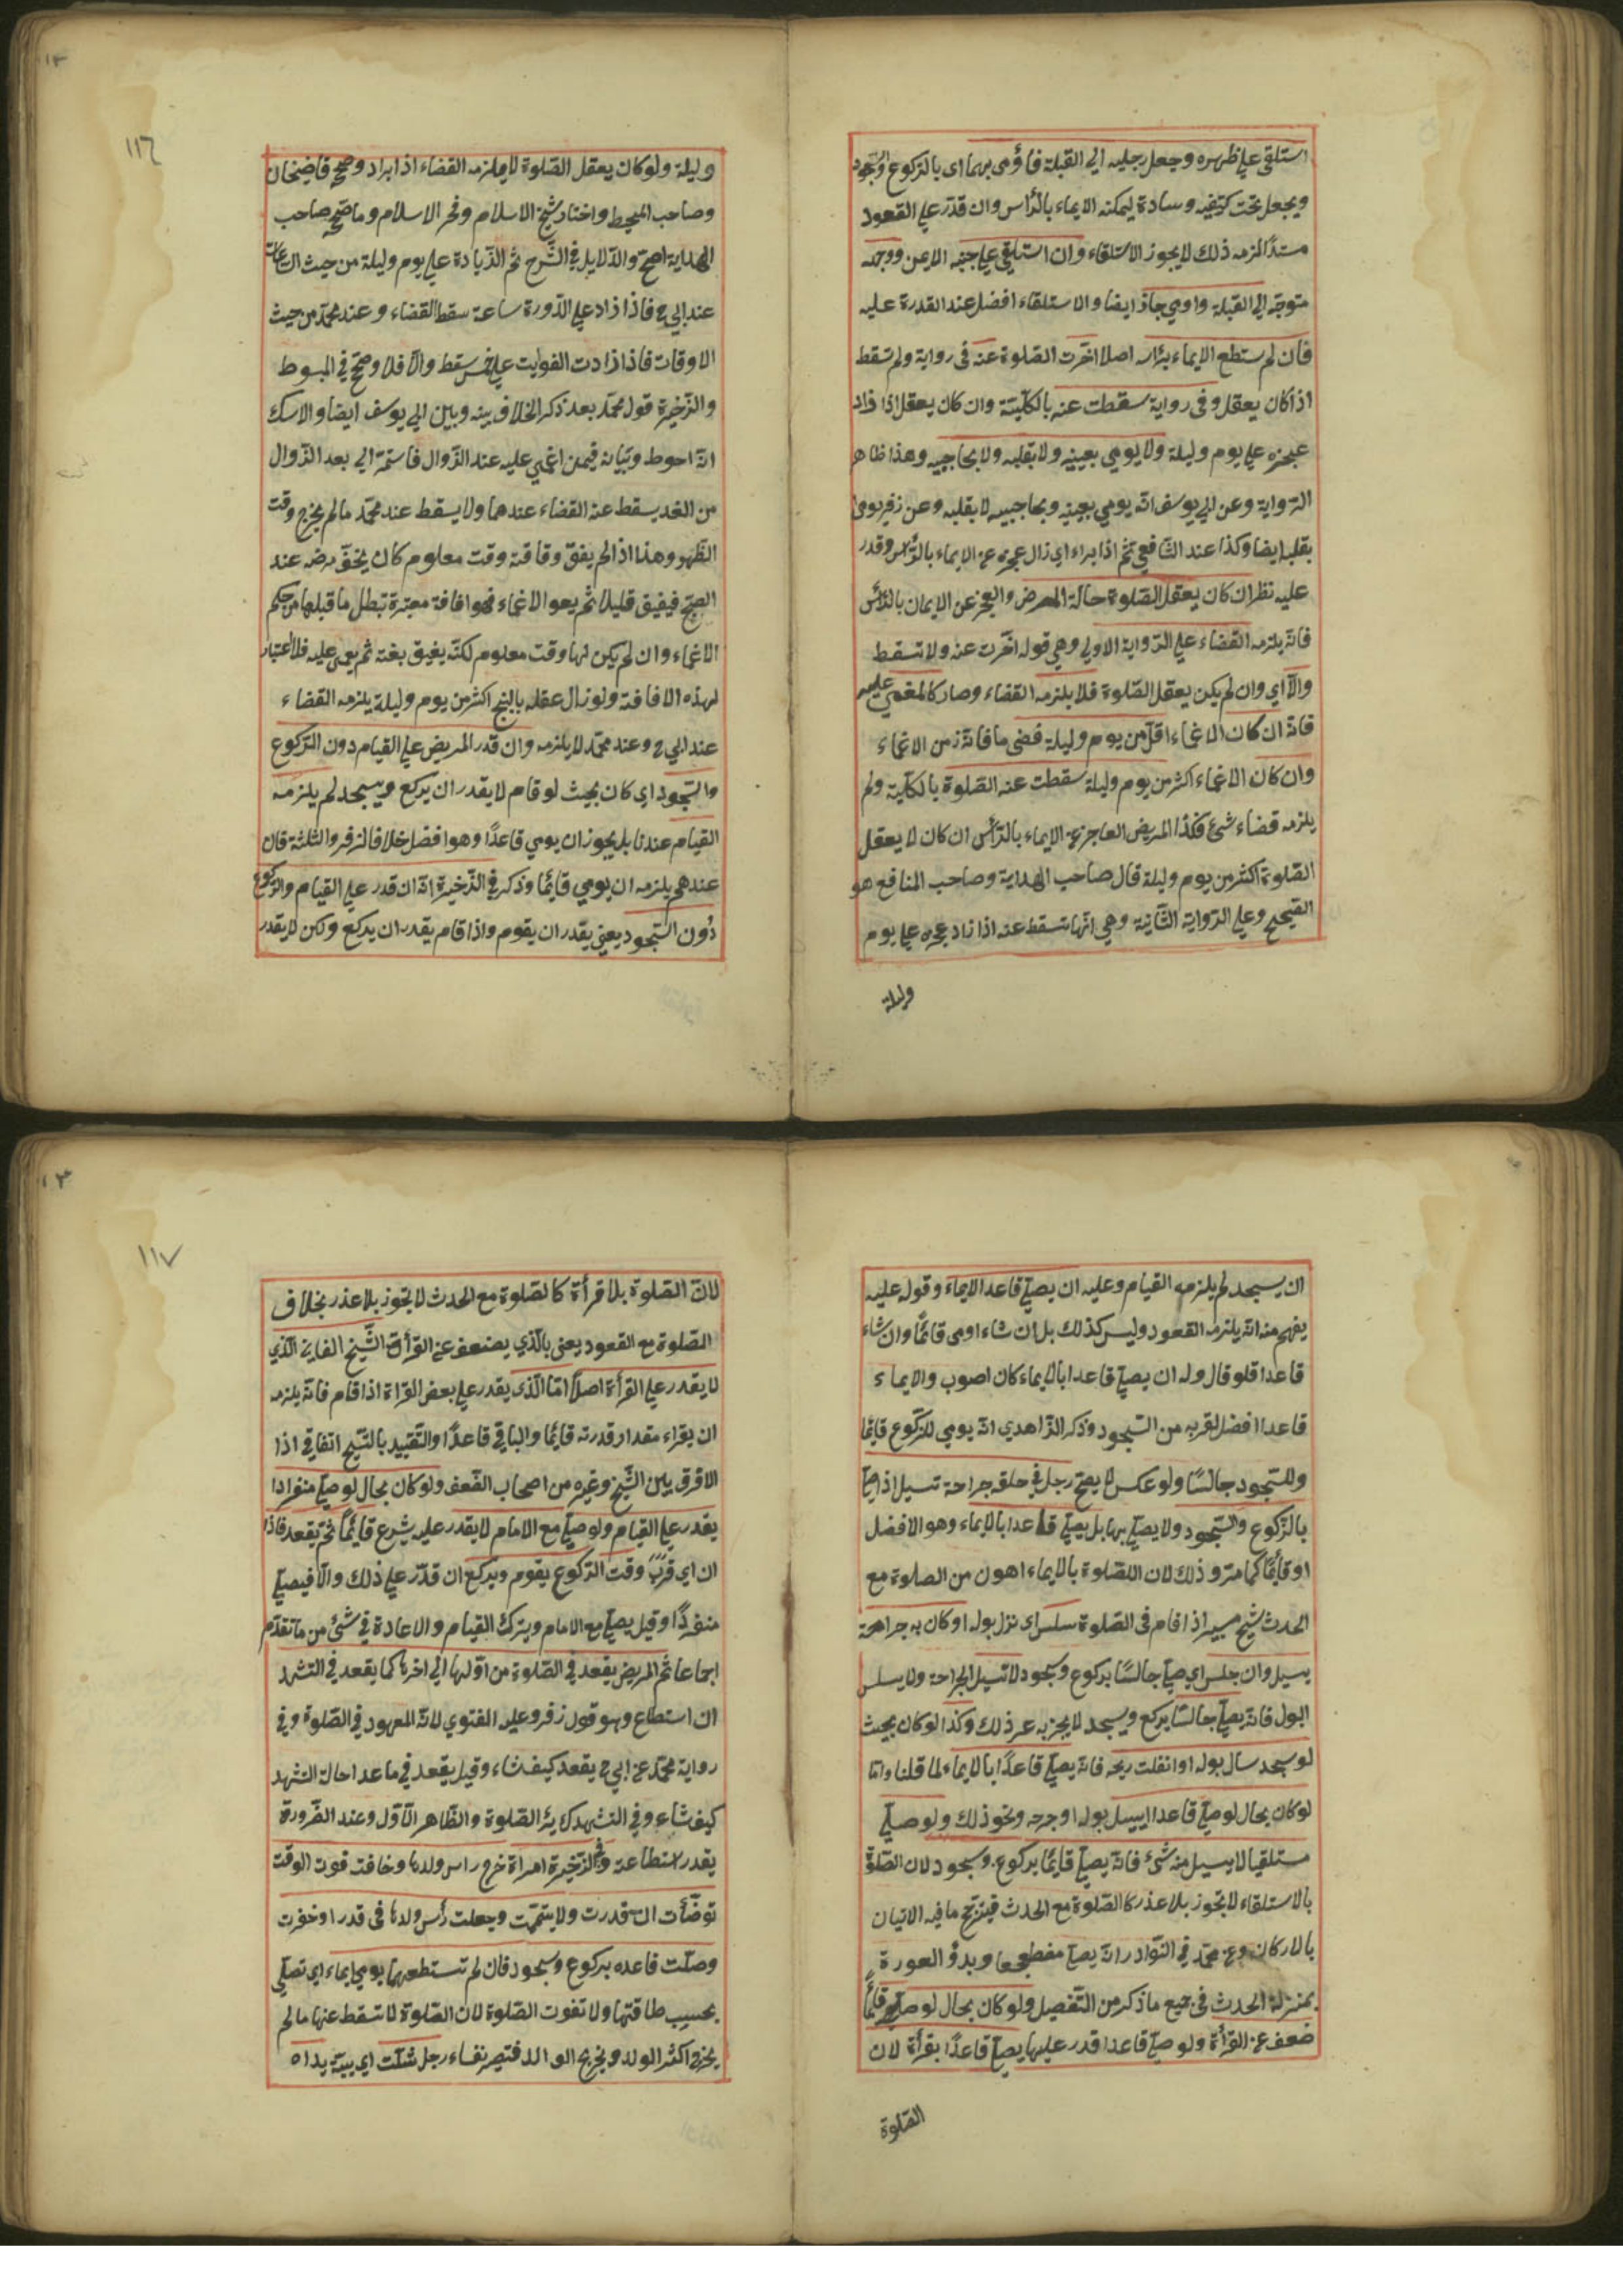 استلقى على ظهره وجعل رجليه الى القبلة فأومى بهما اى بالركوع والسجود
ويجعل تحت كتفيه وسادة ليمكنه الايماء بالرأس وان قدر على القعود
مستندا لزمه ذلك لا يجوز الاستلقاء وان استلقى على جنبه الايمن ووجهه
متوجه الى القبلة واومى جاز ايضا والاستلقاء افضل عند القدرة عليه
فان لم ستطع الايماء برأسه اصلا اخرت الصلوة عنه فى رواية ولم تسقط
اذا كان يعقل وفى رواية سقطت عنه بالكلية وان كان يعقل اذا زاد
عجزه على يوم وليلة ولا يومي بعينيه ولا بقلبه ولا بحاجبيه وهذا ظاهر
الرواية وعن ابي يوسف انه يومي بعينيه وبحاجبيه لا بقلبه وعن زفر يومى
بقلبه ايضا وكذا عند الشافعي ثم اذا براء اي زال عجزه عن الايماء بالرأس وقدر
عليه نظر ان كان يعقل الصلوة حالة المرض والعجز عن الايمان بالرأس
فانه يلزمه القضاء على الرواية الاولي وهي قوله اخرت عنه ولا تسقط
والا اي وان لم يكن يعقل الصلوة فلا يلزمه القضاء وصار كالمغمي عليه
فانه ان كان الاغماء اقل من يوم وليلة قضى ما فاته زمن الاغماء
وان كان الاغماء اكثر من يوم وليلة سقطت عنه الصلوة بالكلية ولم
يلزمه قضاء شئ فكذا المريض العاجز عن الايماء بالرأس ان كان لا يعقل
الصلوة اكثر من يوم وليلة قال صاحب الهداية وصاحب المنافع هو
الصحيح وعلى الرواية الثانية وهي انها تسقط عنه اذا زاد عجزه على يوم
وليلة
١١٦
وليلة ولو كان يعقل الصلوة لا يلزمه القضاء اذا براد وصحح قاضيخان
وصاحب المحيط واختار شيخ الاسلام وفخر الاسلام وما صححه صاحب
الهداية اصح والدلايل في الشرح ثم الزيادة على يوم وليلة من حيث الساعات
عند ابي ح فاذا زاد على الدورة ساعة سقط القضاء وعند محمد من حيث
الاوقات فاذا زادت الفوايت على خمس سقط والا فلا وصحح في المبسوط
والذخيرة قول محمد بعد ذكر الخلاف بينه وبين ابي يوسف ايضا ولا شك
انه احوط وبيانه فيمن اغمي عليه عند الزوال فاستمر الى بعد الزوال
من الغد يسقط عنه القضاء عندهما ولا يسقط عند محمد ما لم يخرج وقت
الظهر وهذا اذا لم يفق وقاقته وقت معلوم كان يخف مرضه عند
الصبح فيفيق قليلا ثم يعو الاغماء فهو افاقة معتبرة تبطل ما قبلها من حكم
الاغماء وان لم يكن لها وقت معلوم لكنه يفيق بغتة ثم يغمى عليه فلا اعتبار
لهذه الافاقة ولو زال عقله بالبنج اكثر من يوم وليلة يلزمه القضاء
عند ابي ح وعند محمد لا يلزمه وان قدر المريض على القيام دون الركوع
والسجود اي كان بحيث لو قام لا يقدر ان يركع ويسجد لم يلزمه
القيام عندنا بل يجوز ان يومي قاعدًا وهو افضل خلافا لزفر والثلثة فان
عندهم يلزمه ان يومي قائما وذكر في الذخيرة انه ان قدر على القيام والركوع
دون السجود يعني يقدر ان يقوم واذا قام يقدر ان يركع ولكن لا يقدر
ان يسجد لم يلزمه القيام وعليه ان يصلي قاعد الايماء وقوله عليه
يفهم منه انه يلزمه القعود وليس كذلك بل ان شاء اومى قائما وان شاء
قاعدا فلو قال وله ان يصلي قاعدا بالايماء كان اصوب والايماء
قاعدا افضل لقربه من السجود وذكر الزاهدي انه يومي للركوع قائما
وللسجود جالسًا ولو عكس لا يصح رجل في حلقه جراحة تسيل اذا صلى
بالركوع والسجود ولا يصلي بها بل يصلي قاعدا بالايماء وهو الافضل
او قائمًا كما مر وذلك لان الصلوة بالايماء اهون من الصلوة مع
الحدث شيخ كبير اذا قام فى الصلوة سلس اى نزل بوله او كان به جراحة
يسيل وان جلس اي صلى جالسًا بركوع وسجود لا تسيل الجراحة ولا يسلس
البول فانه يصلي جالسًا يركع ويسجد لا يجزيه غير ذلك وكذا لو كان بحيث
لو سجد سال بوله او انفلت ريحه فانه يصلي قاعدًا بالايماء لما قلنا واما
لو كان بحال لو صلى قاعدا ايسيل بوله او جرحه ونحو ذلك ولو صلى
مستلقيا لا يسيل منه شئ فانه يصلي قائما بركوع وسجود لان الصلوة
بالاستلقاء لا يجوز بلا عذر كالصلوة مع الحدث فيترجح ما فيه الاتيان
بالاركان وعن محمد في النوادر انه يصلي مضطجعا وبدو العورة
بمنزلة الحدث فى جميع ما ذكر من التفصيل ولو كان بحال لو صلى قائما
ضعف عن القرأة ولو صلى قاعدا قدر عليها يصلي قاعدًا بقرأة لان
الصلوة
١١٧
لان الصلوة بلا قرأة كالصلوة مع الحدث لا تجوز بلا عذر بخلاف
الصلوة مع القعود يعنى بالذي يضعف عن القرأة الشيخ الفاني الذي
لا يقدر على القرأة اصلا اما الذى يقدر على بعض القراة اذا قام فانه يلزمه
ان يقراء مقدار قدرته قائما والباقي قاعدًا والتقييد بالشيخ اتفاقي اذا
لا فرق بين الشيخ وغيره من اصحاب الضعف ولو كان بحال لو صلى منفرادا
يقدر على القيام ولو صلى مع الامام لا يقدر عليه يشرع قائمًا ثم يقعد فاذا
ان اي قرب وقت الركوع يقوم ويركع ان قدر على ذلك والا فيصلي
منفردًا وقيل يصلي مع الامام ويترك القيام والاعادة في شئ من ما تقدم
اجماعا ثم المريض يقعد في الصلوة من اولها الى اخرها كما يقعد في التشهد
ان استطاع وهو قول زفر وعليه الفتوي لانه المعهود في الصلوة وفي
رواية محمد عن ابي ح يقعد كيف شاء وقيل يقعد في ما عدا حالة التشهد
كيف شاء وفي التشهد كسائر الصلوة والظاهر الاول وعند الضرورة
يقدر استطاعته وفي الذخيرة امراة خرج راس ولدها وخافت فوت الوقت
توضأت ان قدرت ولا يتيممت وجعلت رأس ولدها فى قدر او حفرت
وصلت قاعده بركوع وسجود فان لم تستطعهما يومي ايماء اي تصلي
بحسب طاقتها ولا تفوت الصلوة لان الصلوة لا تسقط عنها ما لم
يخرج اكثر الولد ويخرج الوالد فتصير نفساء رجل شلت اي يبيت يداه